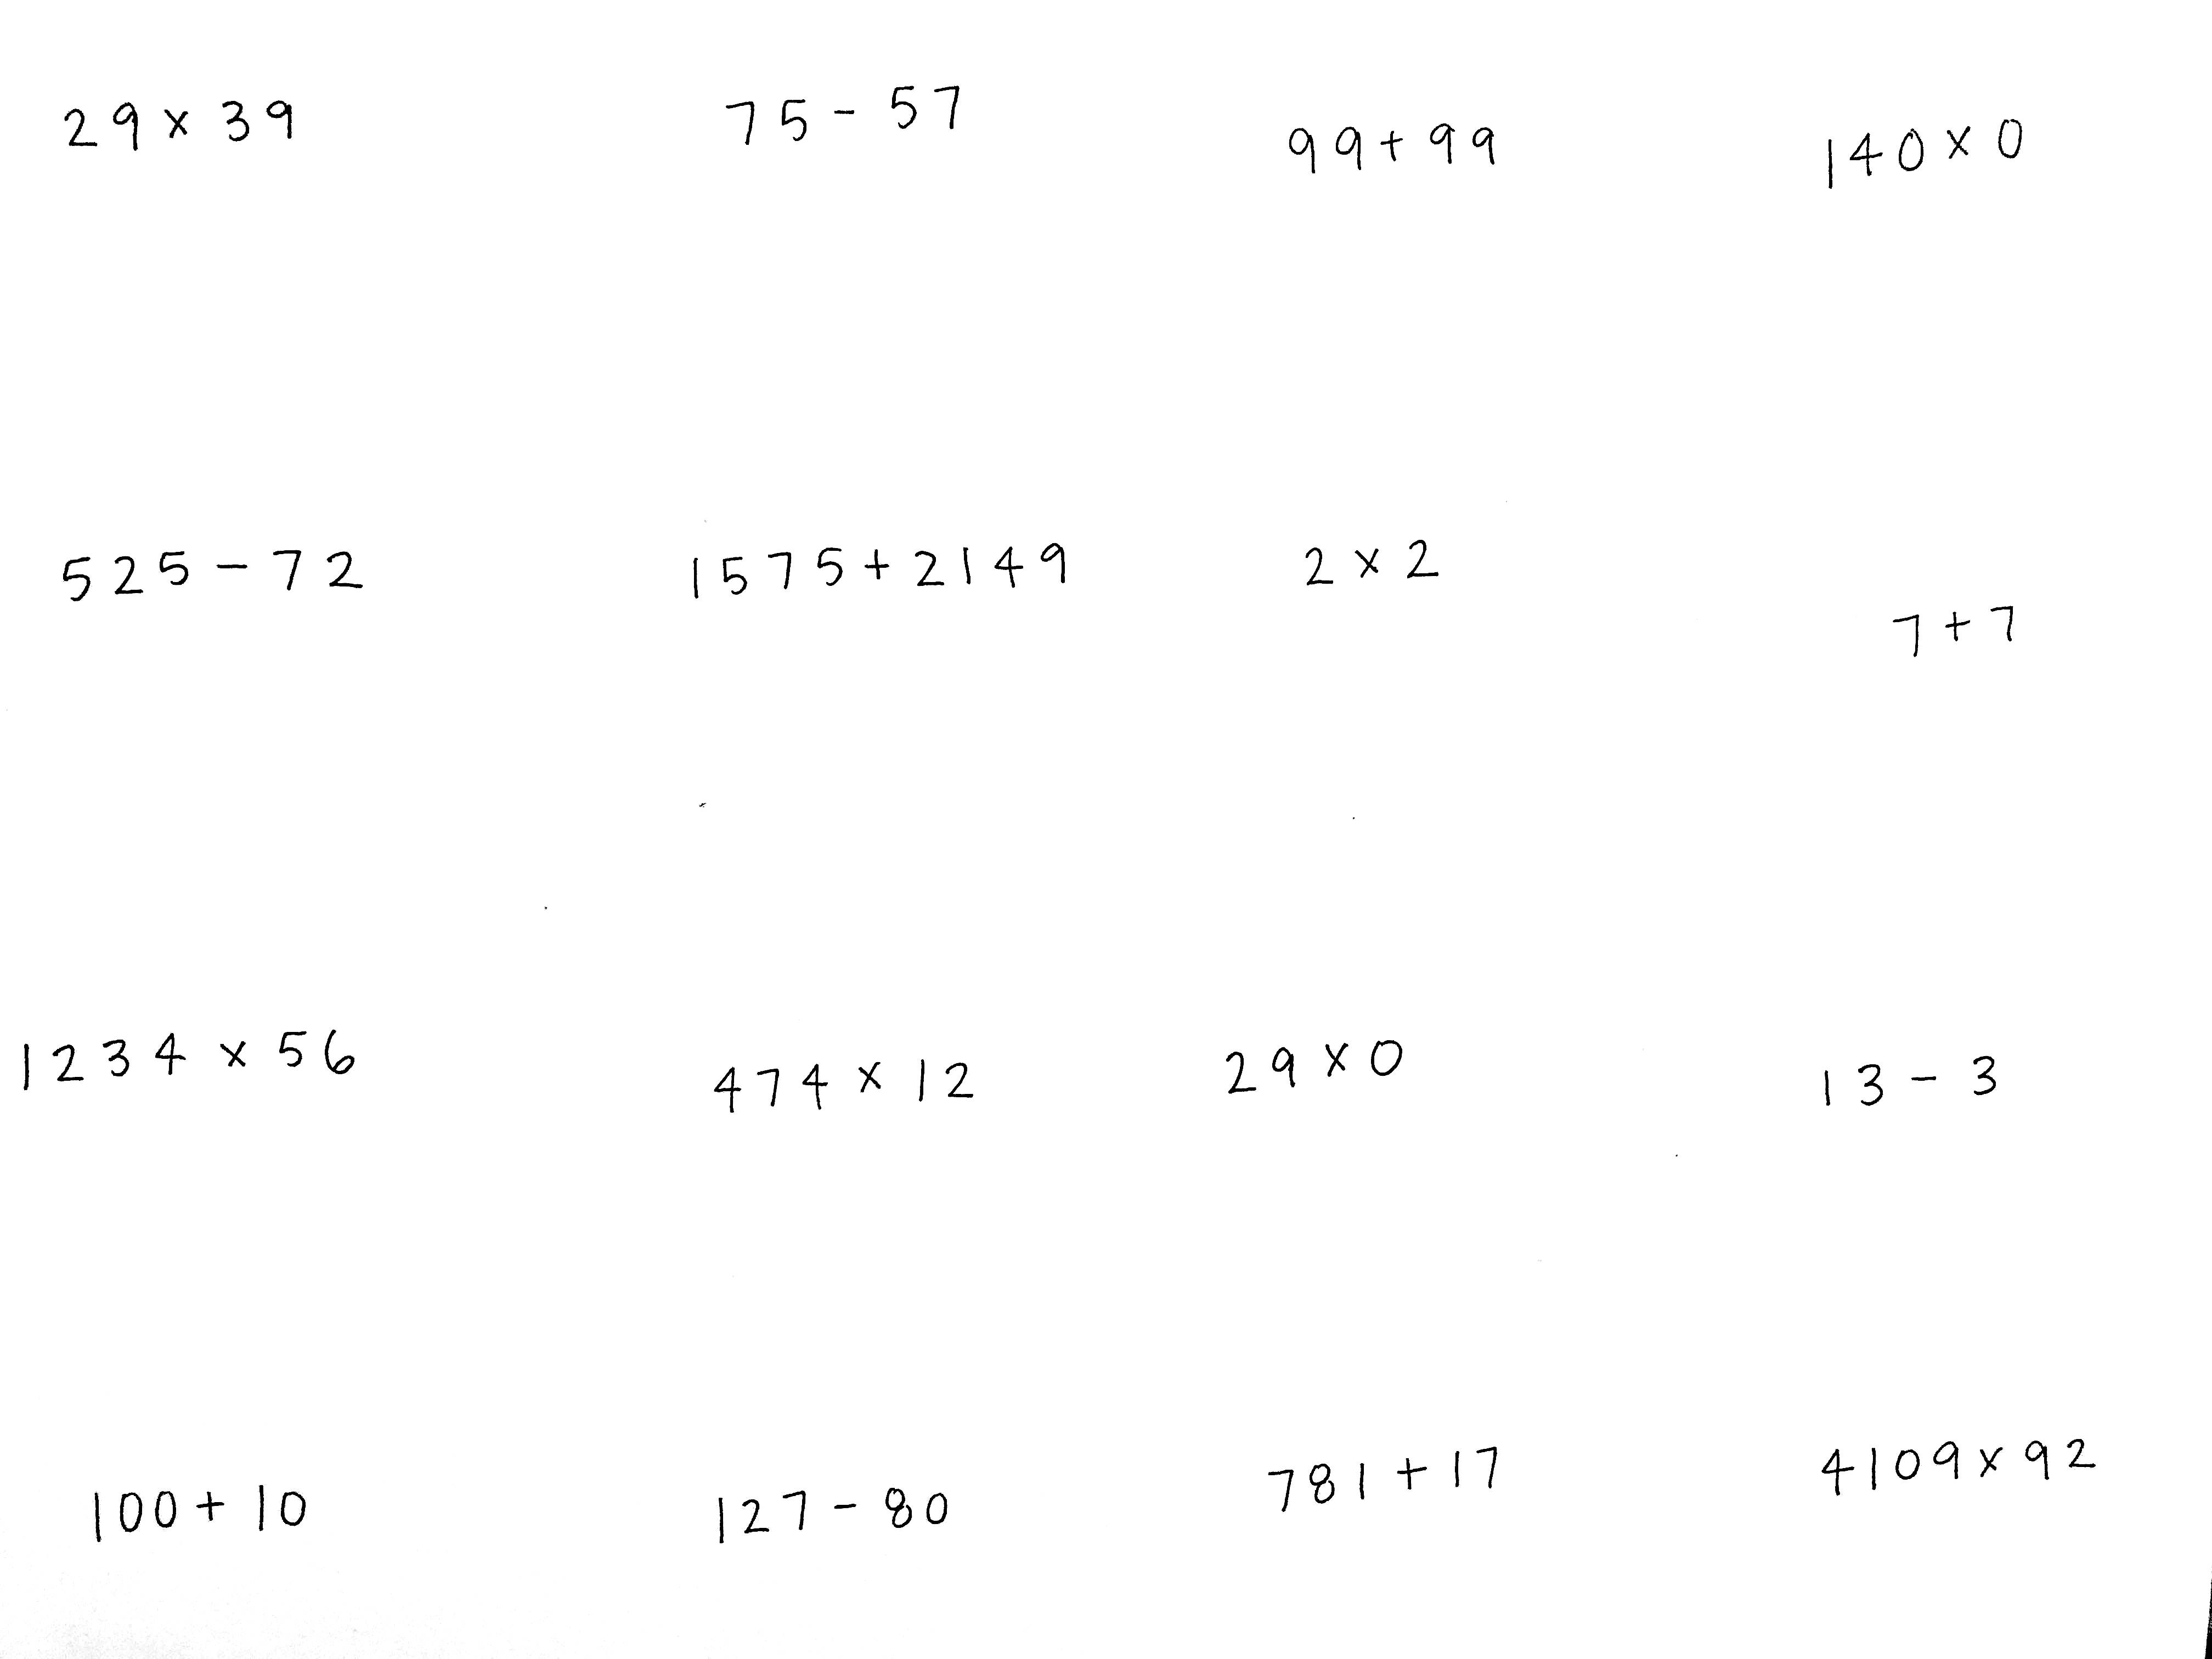 29 x 39
75 - 57
99 + 99
140 x 0
525 - 72
1575 + 2149
2 x 2
7 + 7
1234 x 56
474 x 12
29 x 0
13 - 3
100 + 10
127 - 80
781 + 17
4109 x 92